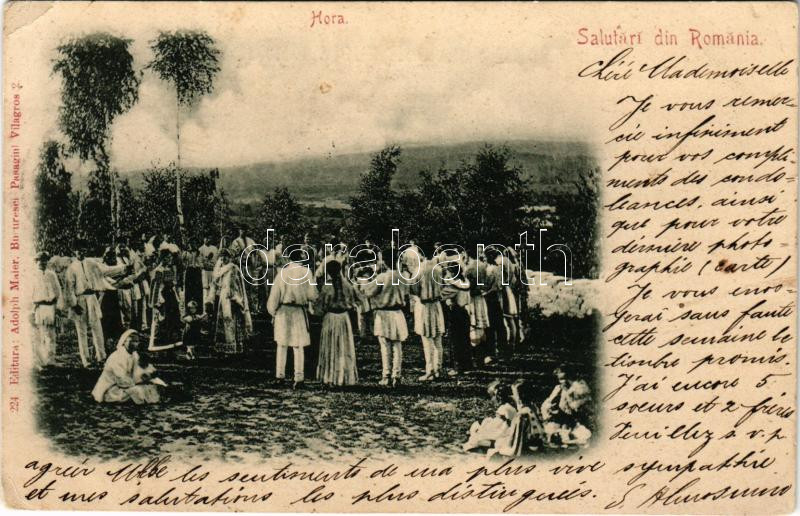 Hora.
Salutări din România.
224 Editura: Adolph Maier, Bucuresci Pasagiul Vilagros 2
darabanth
Chéré Mademoiselle
Je vous remer-
cie infiniment
pour vos compli-
ments des condo-
léances, ainsi
que pour votre
dernière photo-
graphie (carte)
Je vous envo-
gerai sans faute
cette semaine le
timbre promis.
J'ai encore 5
soeurs et 2 frères
Veuillez s. v. p.
agréer Mlle les sentiments de ma plus vive sympathie
et mes salutations les plus distinguées.